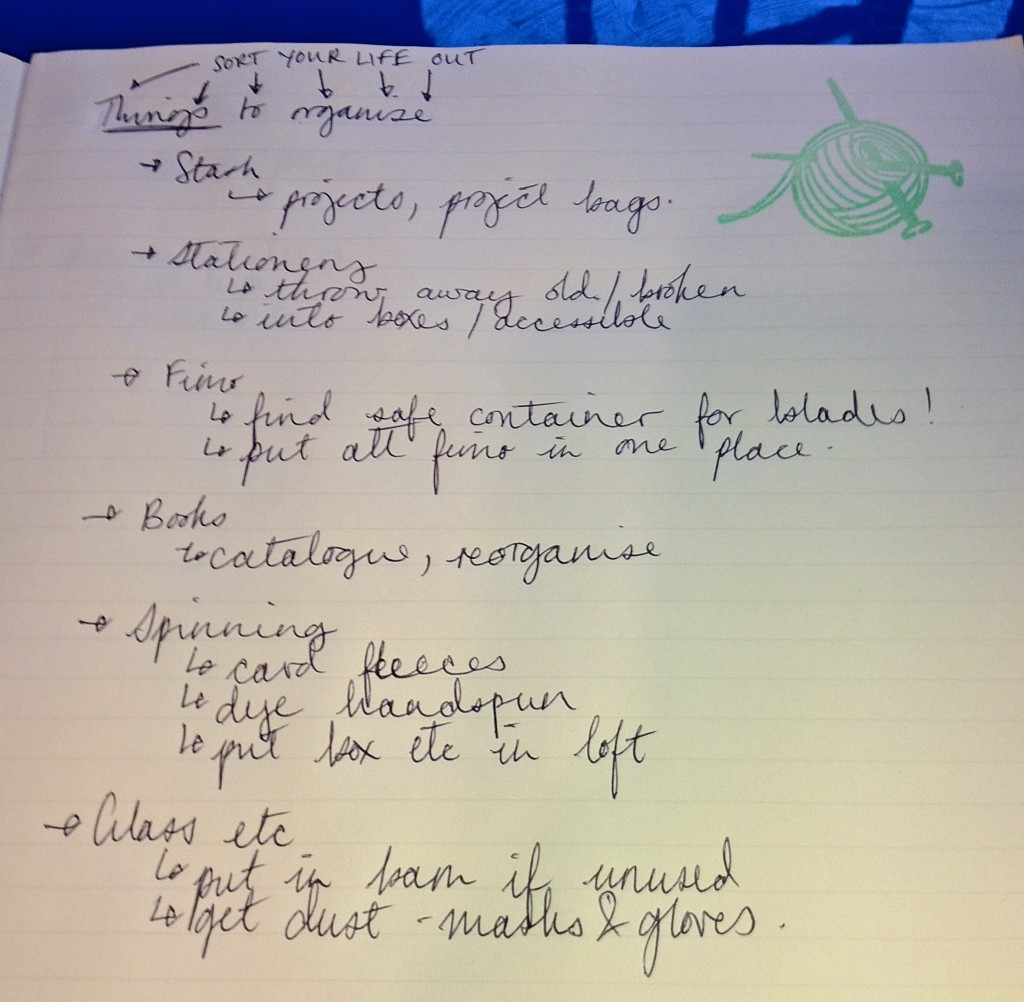 SORT YOUR LIFE OUT
Things to organise
→ Stash
↳ projects, project bags.
→ Stationery
↳ throw away old / broken
↳ into boxes / accessible
→ Fimo
↳ find safe container for blades!
↳ put all fimo in one place.
→ Books
↳ catalogue, reorganise
→ Spinning
↳ card fleeces
↳ dye handspun
↳ put box etc in loft
→ Glass etc
↳ put in barn if unused
↳ get dust-masks & gloves.